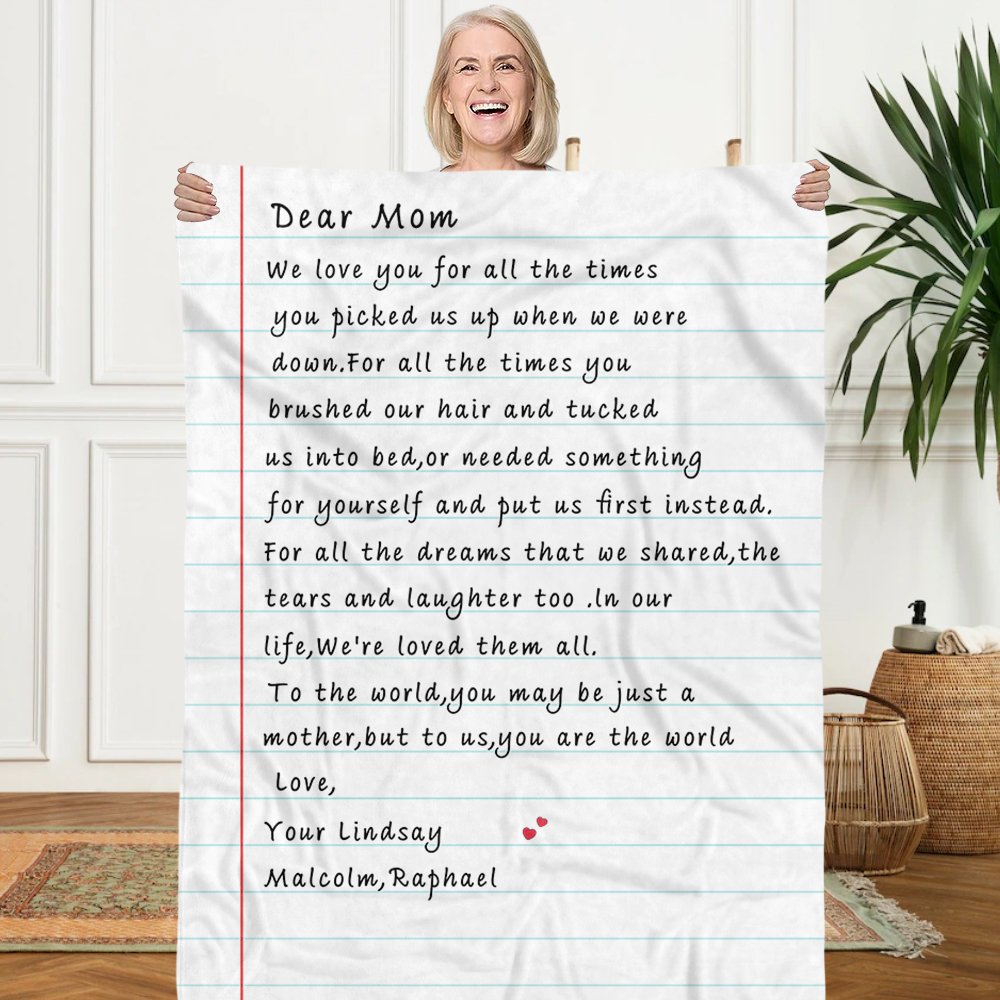 Dear Mom
We love you for all the times
you picked us up when we were
down.For all the times you
brushed our hair and tucked
us into bed,or needed something
for yourself and put us first instead.
For all the dreams that we shared,the
tears and laughter too .ln our
life,We're loved them all.
To the world,you may be just a
mother,but to us,you are the world
Love,
Your Lindsay
Malcolm,Raphael